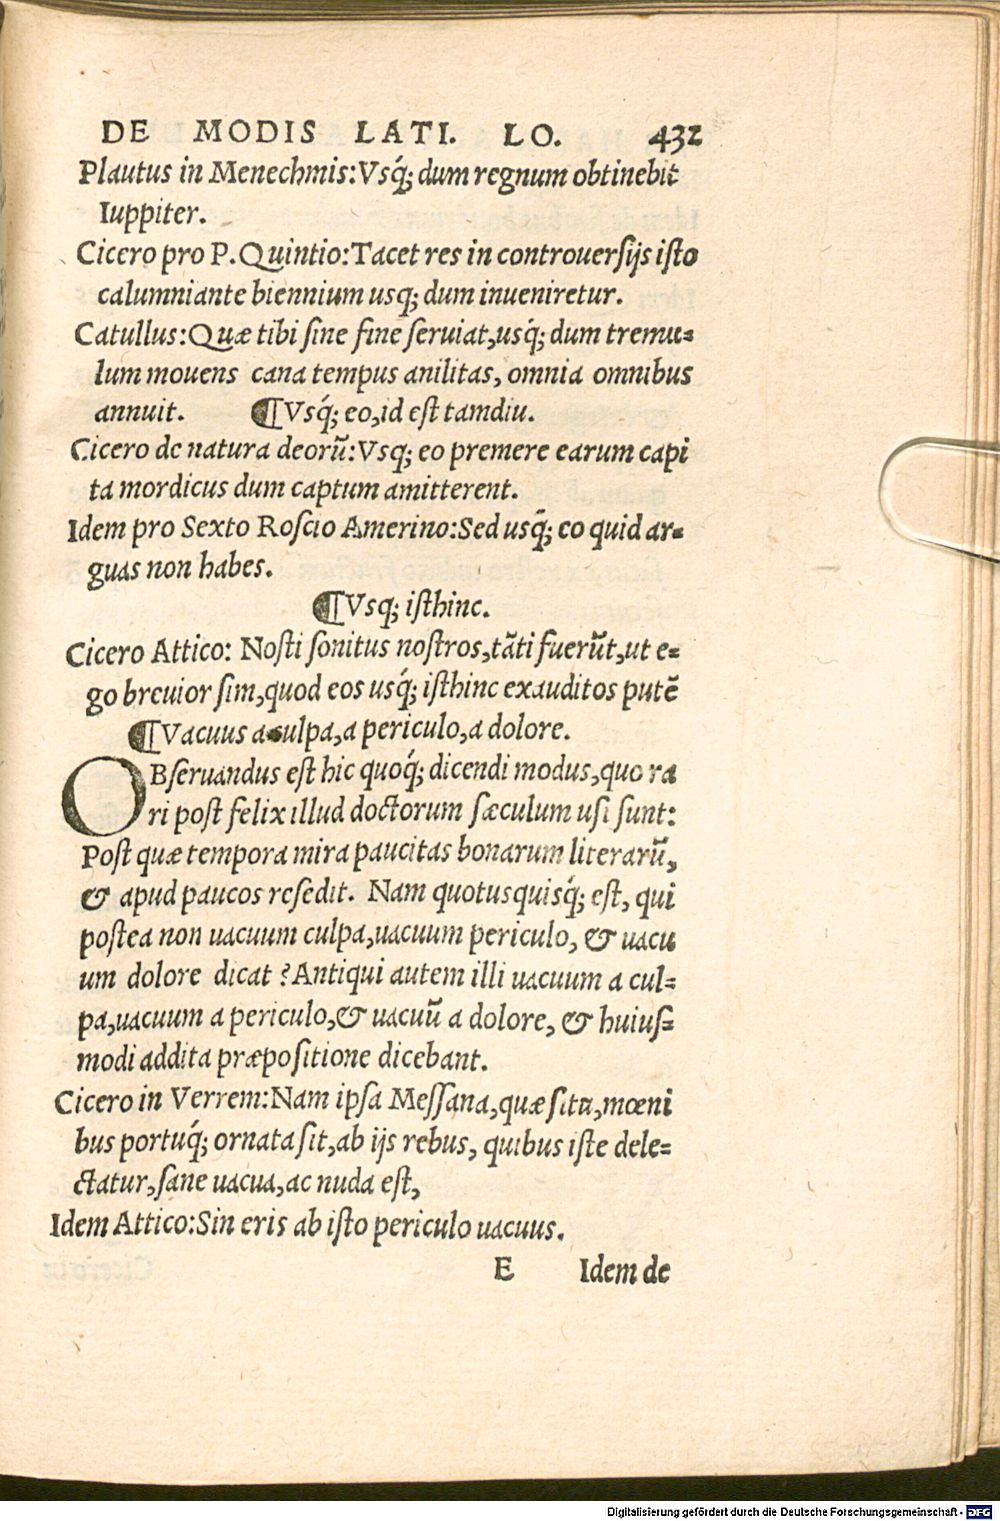 DE MODIS LATI. LO. 432
Plautus in Menechmis:Vsq́; dum regnum obtinebit
Iuppiter.
Cicero pro P.Quintio:Tacet res in controuerſijs iſto
calumniante biennium usq; dum inueniretur.
Catullus:Quæ tibi ſine fine ſeruiat,usq́; dum tremu=
lum mouens cana tempus anilitas, omnia omnibus
annuit. ¶Vsq́; eo,id eſt tamdiu.
Cicero de natura deorū:Vsq; eo premere earum capi
ta mordicus dum captum amitterent.
Idem pro Sexto Roſcio Amerino:Sed usq́; eo quid ar=
guas non habes.
¶Vsq; iſthinc.
Cicero Attico: Noſti ſonitus noſtros,tāti fuerūt,ut e=
go breuior ſim,quod eos usq́; iſthinc exauditos putē
¶Vacuus a culpa,a periculo,a dolore.
OBſeruandus eſt hic quoq́; dicendi modus,quo ra
ri poſt felix illud doctorum ſæculum uſi ſunt:
Poſt quæ tempora mira paucitas bonarum literarū,
& apud paucos reſedit. Nam quotusquisq́; eſt, qui
poſtea non uacuum culpa,uacuum periculo, & uacu
um dolore dicat ? Antiqui autem illi uacuum a cul=
pa,uacuum a periculo,& uacuū a dolore, & huiuſ=
modi addita præpoſitione dicebant.
Cicero in Verrem:Nam ipſa Meſſana,quæ ſitu,mœni
bus portuq́; ornata ſit,ab ijs rebus, quibus iſte dele=
ctatur,ſane uacua,ac nuda eſt,
Idem Attico:Sin eris ab iſto periculo uacuus.
E Idem de
Digitalisierung gefördert durch die Deutsche Forschungsgemeinschaft - DFG